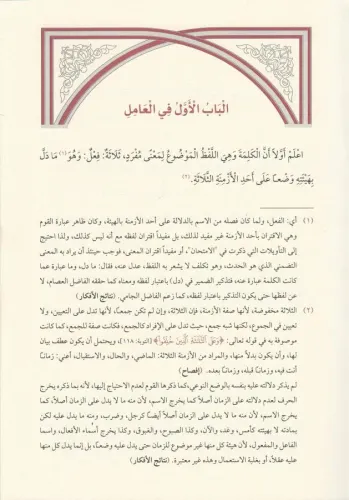 الْبَابُ الْأَوَّلُ فِي الْعَامِلِ
اعْلَمْ أَوَّلاً أَنَّ الْكَلِمَةَ وَهِيَ اللَّفْظُ الْمَوْضُوعُ لِمَعْنًى مُفْرَدٍ، ثَلَاثَةٌ: فِعْلٌ: وَهُوَ (١) مَا دَلَّ
بِهَيْئَتِهِ وَضْعاً عَلَى أَحَدِ الْأَزْمِنَةِ الثَّلَاثَةِ. (٢)
(١) أي: الفعل، ولما كان فصله من الاسم بالدلالة على أحد الأزمنة بالهيئة، وكان ظاهر عبارة القوم
وهي الاقتران بأحد الأزمنة غير مفيد لذلك، بل مفيداً اقتران لفظه مع أنه ليس كذلك، ولذا احتيج
إلى التأويلات التي ذكرت في "الامتحان"، أو مفيداً اقتران المعنى، فوجب حينئذ أن يراد به المعنى
التضمني الذي هو الحدث، وهو تكلف لا يشعر به اللفظ، عدل عنه، فقال: ما دل، وما عبارة عما
كانت الكلمة عبارة عنه، فتذكير الضمير في (دل) باعتبار لفظه ومعناه كما حققه الفاضل العصام، لا
عن لفظها حتى يكون التذكير باعتبار لفظه، كما زعم الفاضل الجامي. (نتائج الأفكار)
(٢) الثلاثة مخفوضة، لأنها صفة الأزمنة، فإن الثلاثة، وإن لم تكن جمعاً، لأنها تدل على التعيين، ولا
تعيين في الجموع، لكنها شبه جمع، حيث تدل على الإفراد كالجمع، فكانت صفة للجمع، كما كانت
موصوفة به في قوله تعالى: ﴿وَعَلَى الثَّلَاثَةِ الَّذِينَ خُلِّفُوا﴾ [التوبة: ١١٨]، ويحتمل أن يكون عطف بيان
لها، وأن يكون بدلاً منها، والمراد من الأزمنة الثلاثة: الماضي، والحال، والاستقبال، أعني: زماناً
أنت فيه، وزمانا قبله، وزمانا بعده. (إفصاح)
لم يذكر دلالته عليه بنفسه بالوضع النوعي، كما ذكرها القوم لعدم الاحتياج إليها، لأنه بما ذكره يخرج
الحرف لعدم دلالته على الزمان أصلاً، كما يخرج الاسم، لأن منه ما لا يدل على الزمان أصلاً، كما
يخرج الاسم، لأن منه ما لا يدل على الزمان أصلاً أيضا كرجل، وضرب، ومنه ما يدل عليه لكن
بمادته لا بهيئته كأمس، وغد، والآن، وكذا الصبوح، والغبوق، وكذا يخرج أسماء الأفعال، واسما
الفاعل والمفعول، لأن هيئة كل منها غير موضوع للزمان حتى يدل عليه وضعاً، بل إنما يدل كل منها
عليه عقلاً، أو بغلبة الاستعمال وهذه غير معتبرة. (نتائج الأفكار)